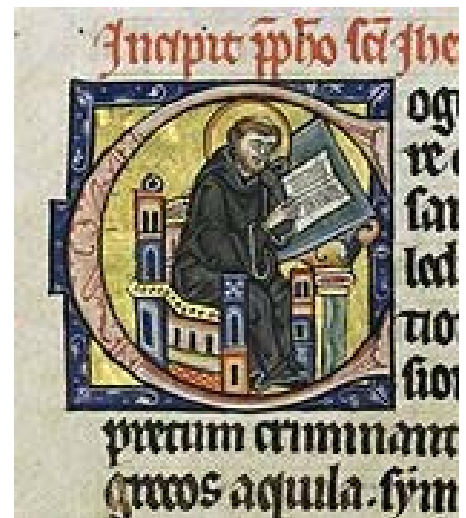 Incipit ꝓp̄ho ſcī Jhe
ogo
re
ſar
led
tio
ſion
pretum criminant
grecos aquila. ſym